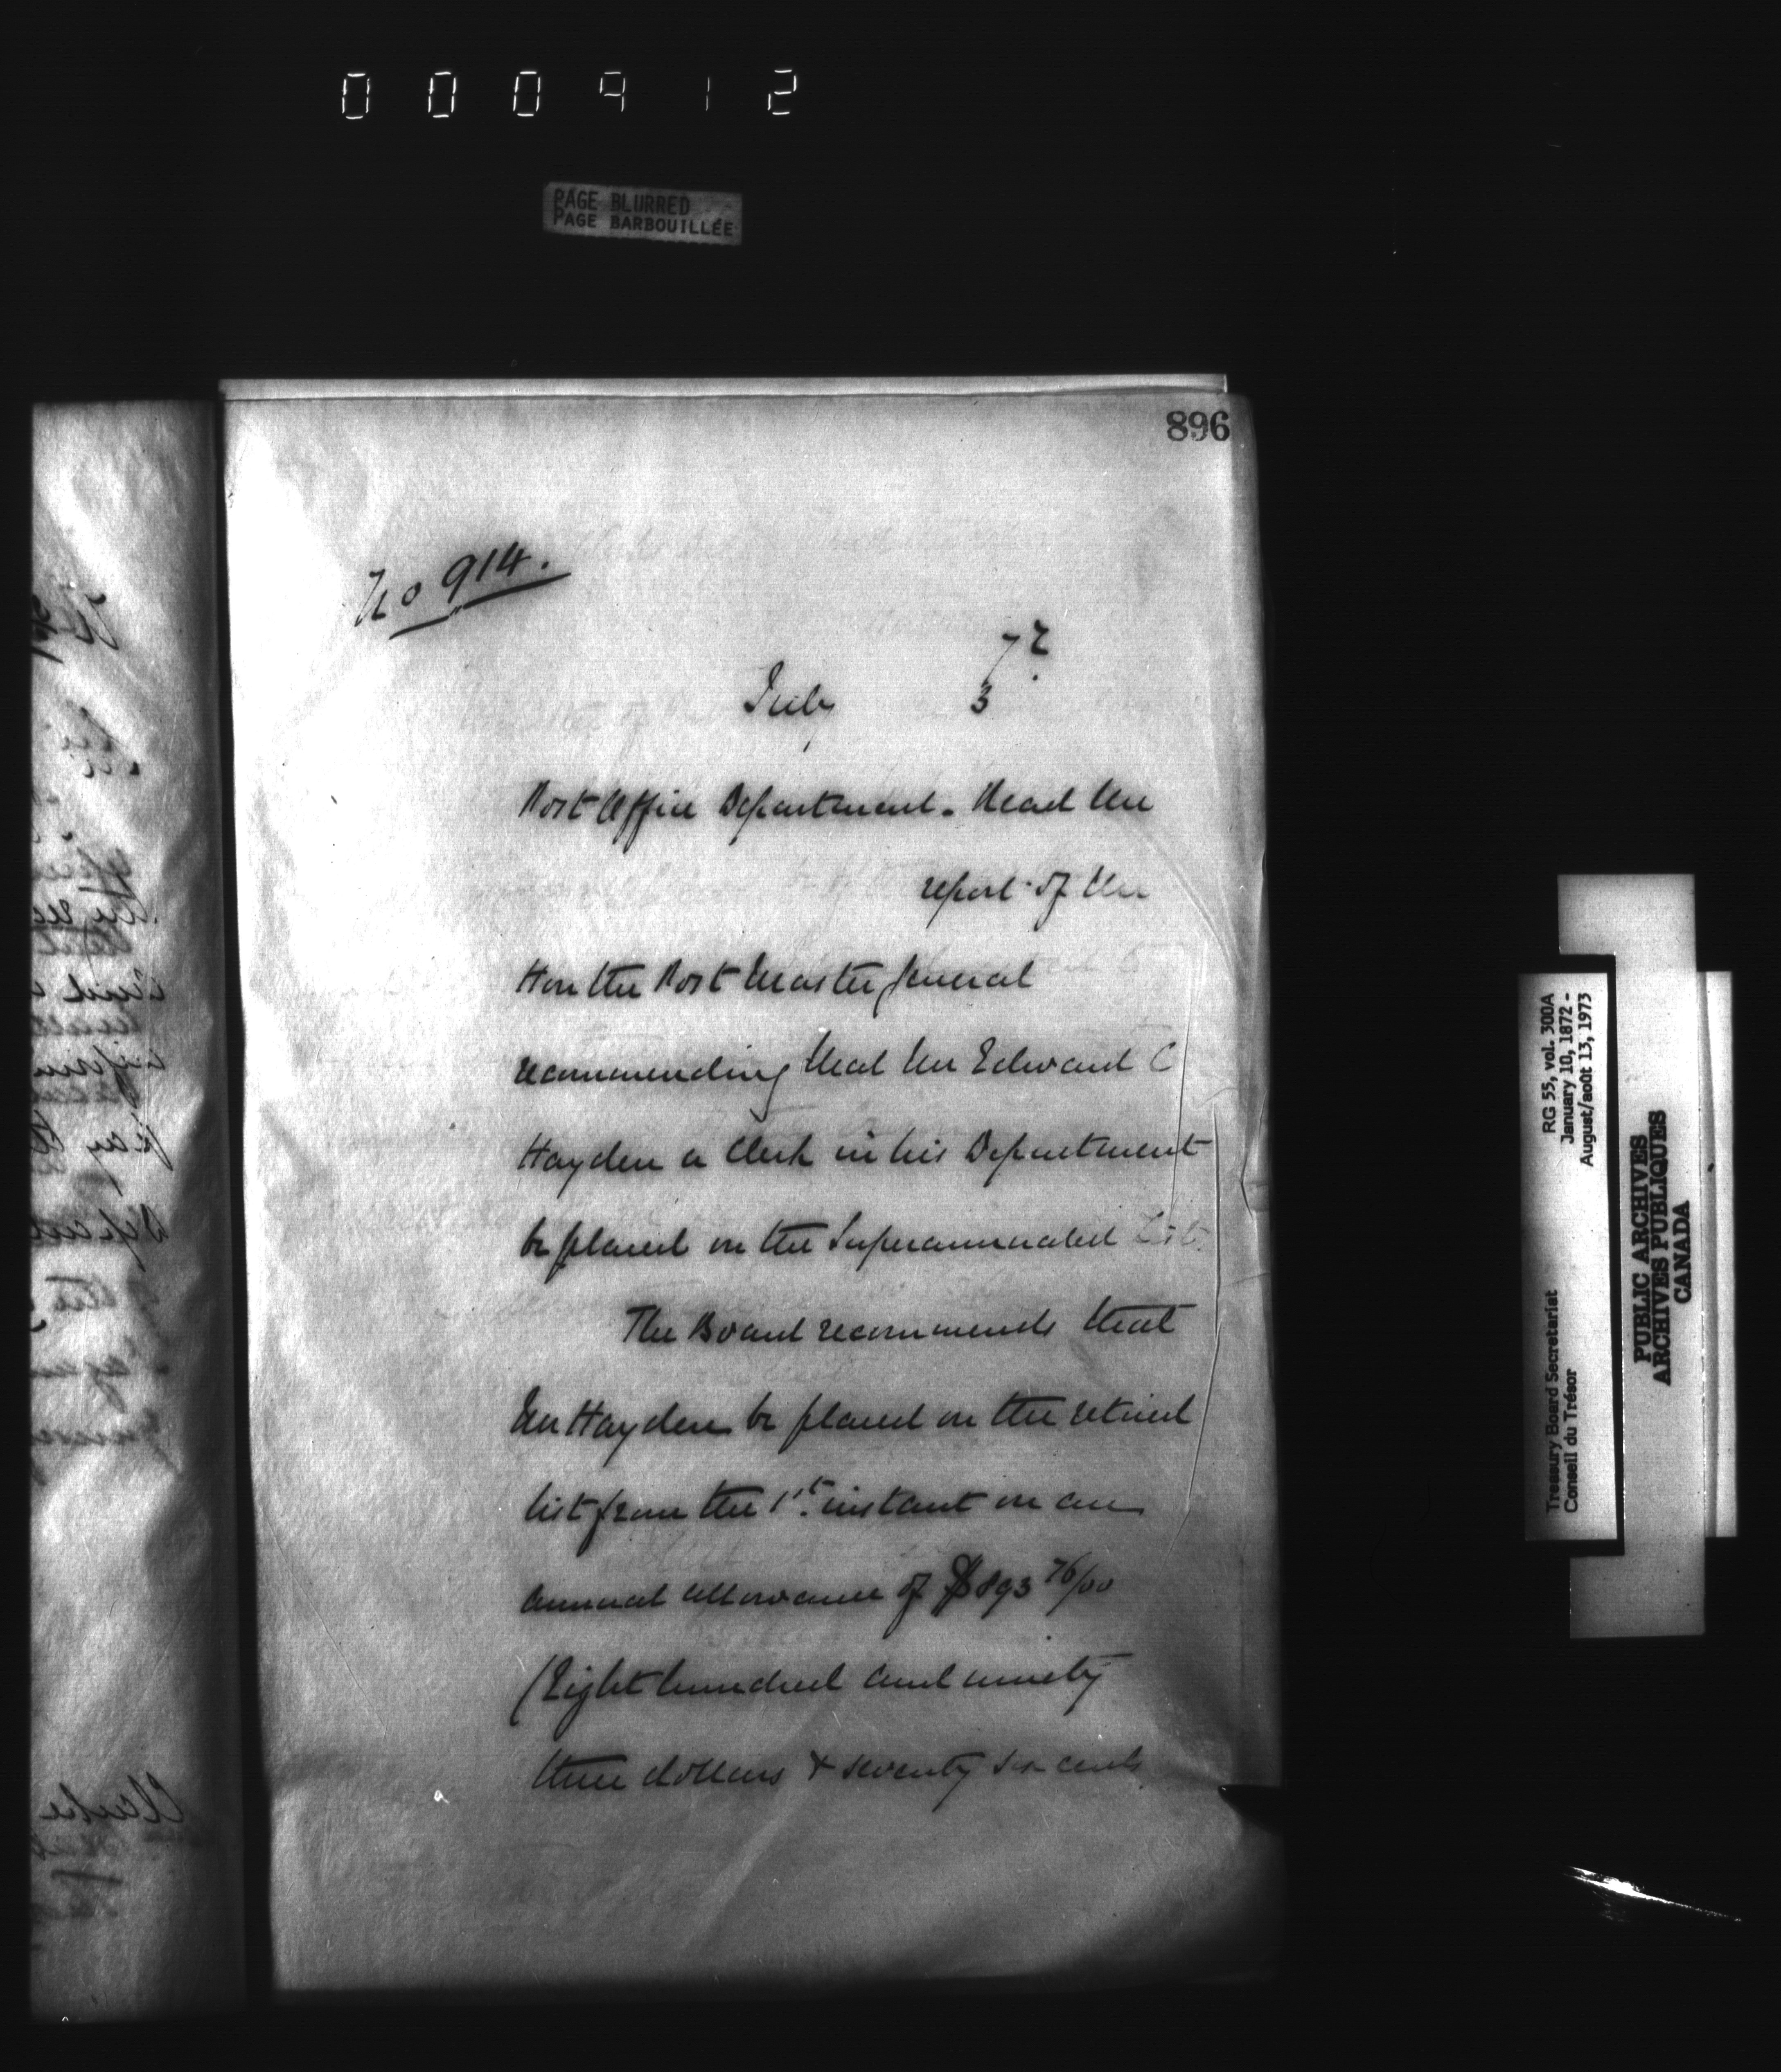 000912
PAGE BLURRED
PAGE BARBOUILLÉE
896
No 914.
July 3 72.
Post Office Department - Read the
report of the
Hon the Post Master General
recommending that Mr Edward C
Hayden a Clerk in his Department
be placed on the Superannuated List.
The Board recommends that
Mr Hayden be placed on the retired
list from the 1st. instant on an
annual allowance of $893 76/00
(Eight hundred and ninety
three dollars & seventy six cents
Treasury Board Secretariat
Conseil du Trésor
RG 55, vol. 300A
January 10, 1872 -
August/août 13, 1973
PUBLIC ARCHIVES
ARCHIVES PUBLIQUES
CANADA